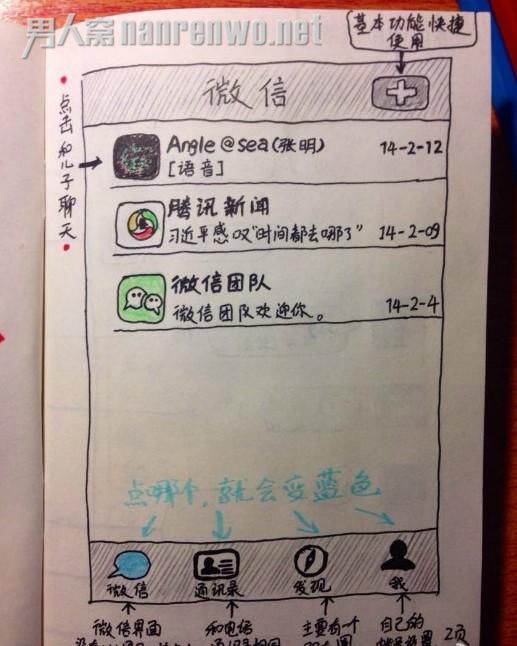 男人窝nanrenwo.net
基本功能快捷
使用
微信
点击和儿子聊天
Angle@sea(张明)
14-2-12
[语音]
腾讯新闻
习近平感叹"时间都去哪了"
14-2-09
微信团队
微信团队欢迎你。
14-2-4
点哪个,就会变蓝色
微信
通讯录
发现
我
微信界面
和电话
主要有一个
自己的
2页